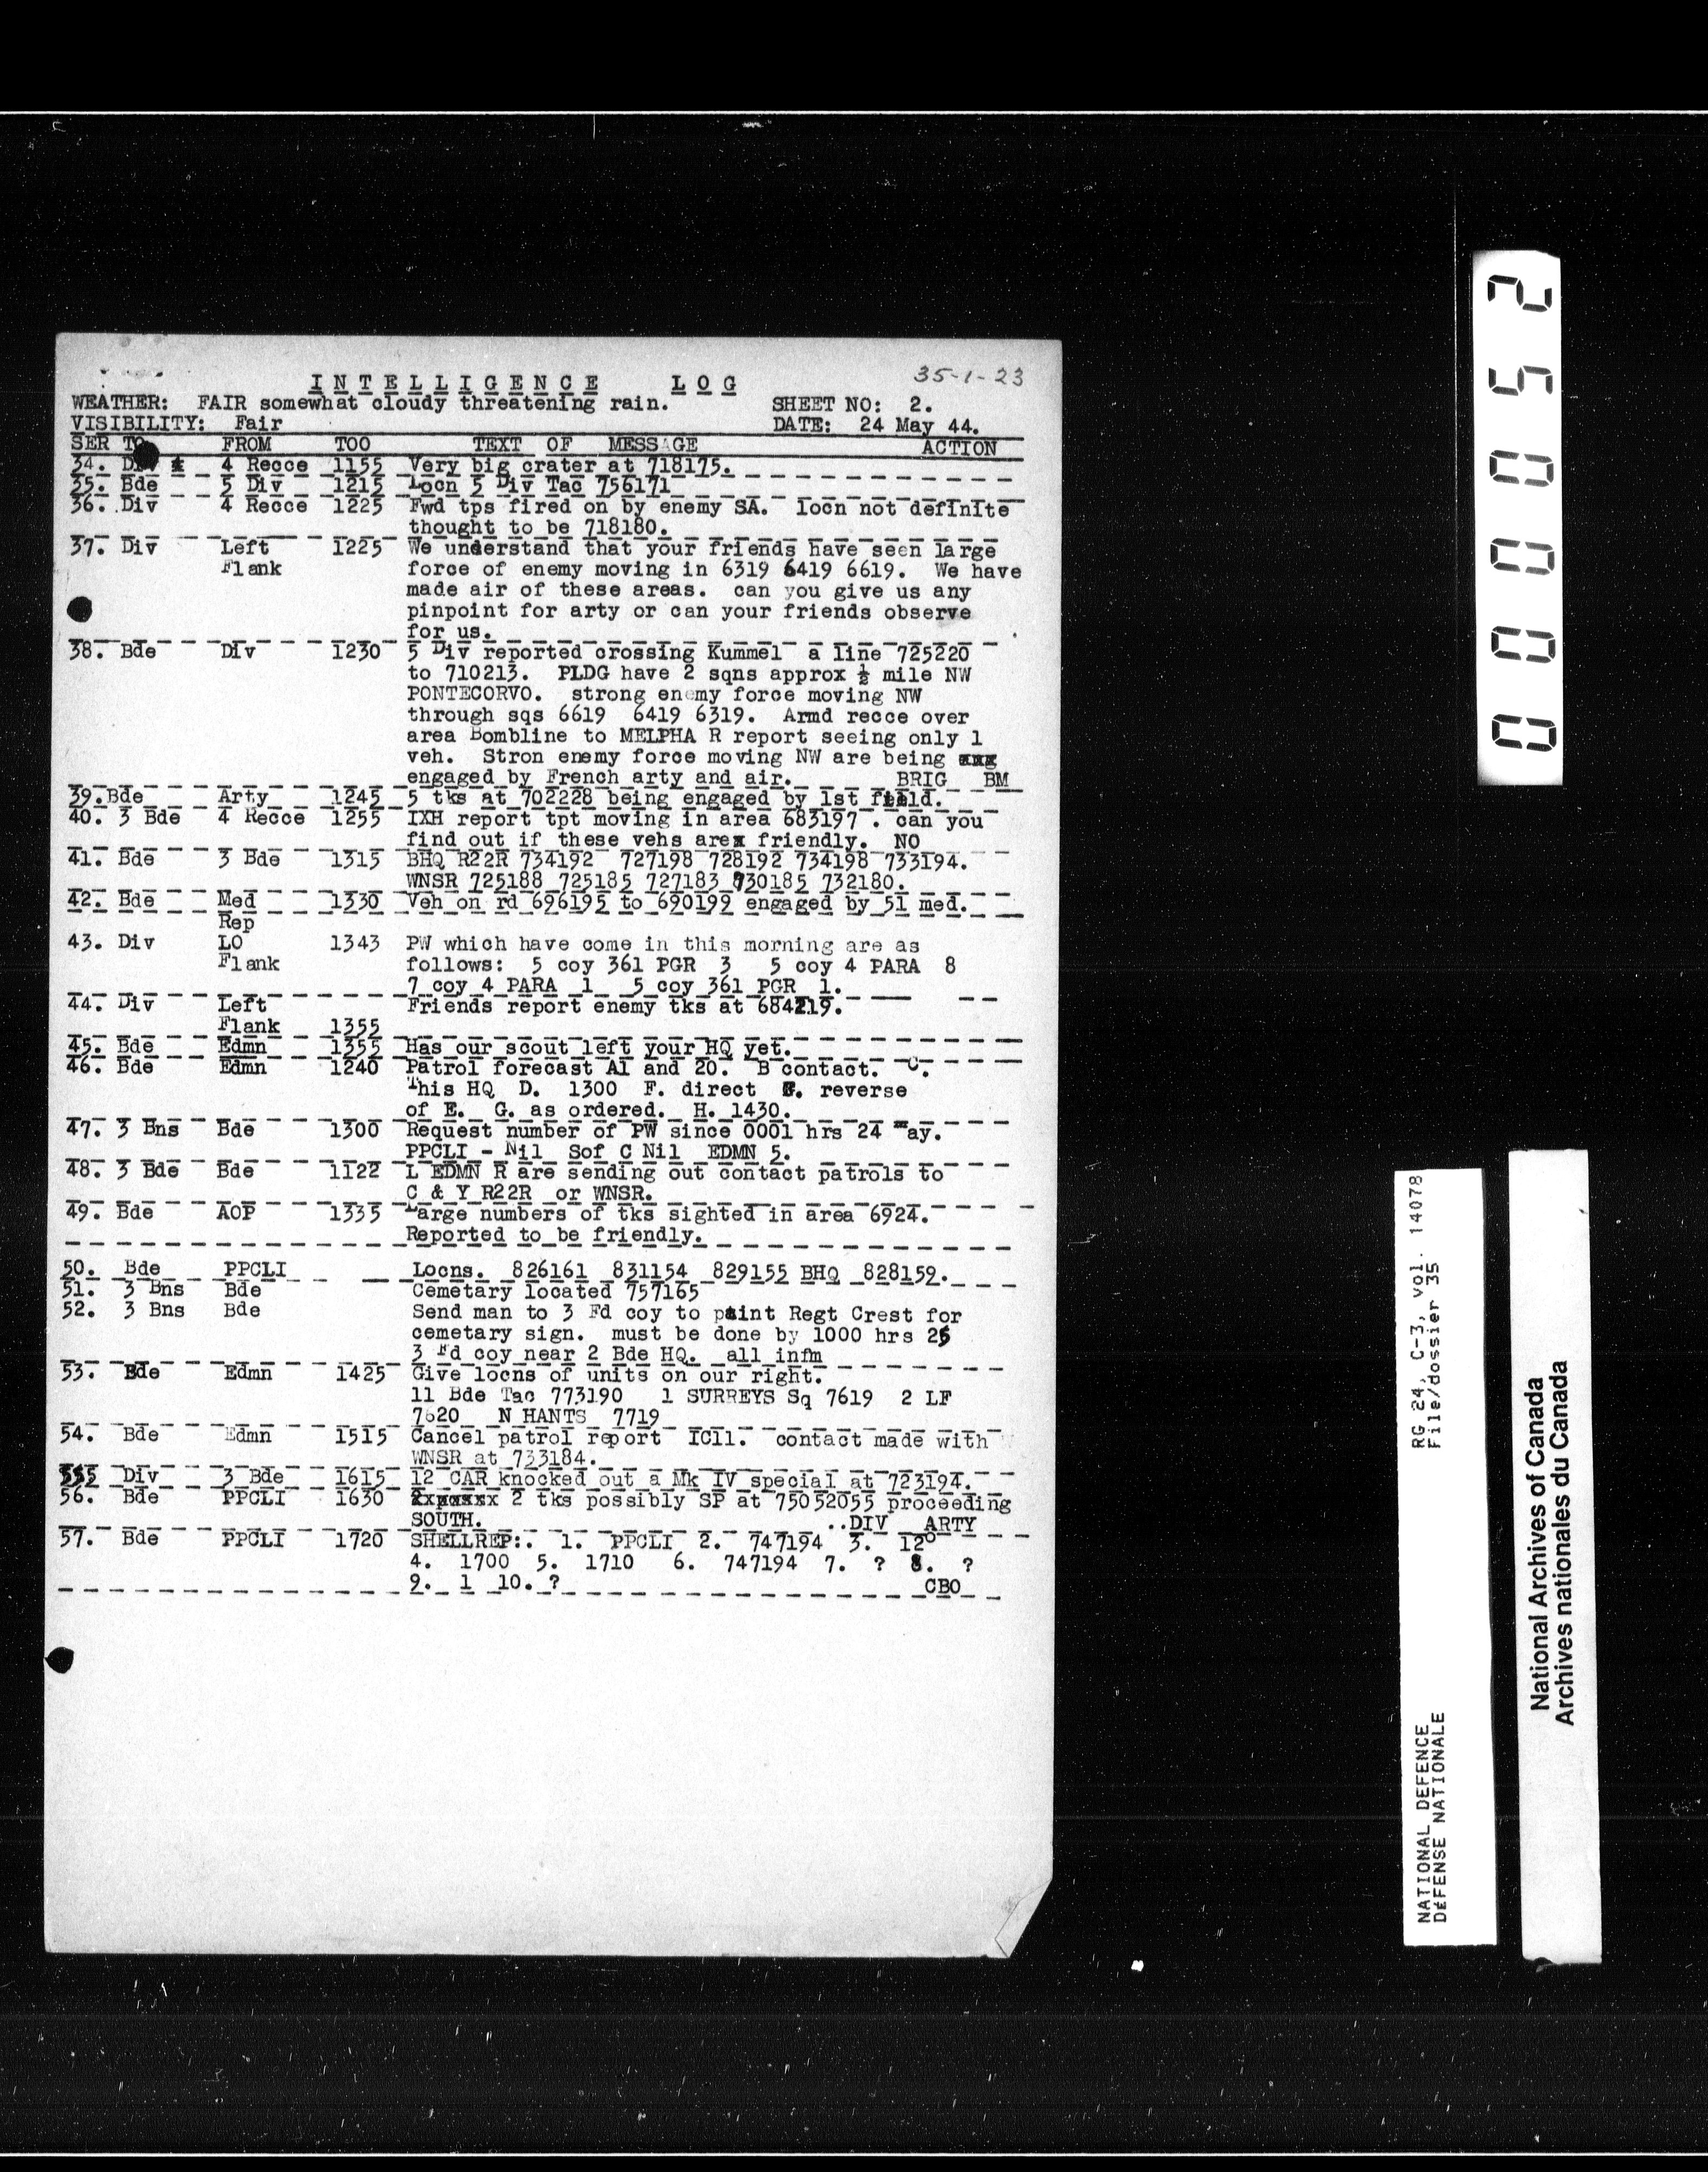 35-1-23
INTELLIGENCE LOG
WEATHER: FAIR somewhat cloudy threatening rain. SHEET NO: 2.
VISIBILITY: Fair DATE: 24 May 44.
SER TO FROM TOO TEXT OF MESSAGE ACTION
34. Div 4 Recce 1155 Very big crater at 718175.
35. Bde 5 Div 1215 Locn 5 Div Tac 756171
36. Div 4 Recce 1225 Fwd tps fired on by enemy SA. locn not definite
thought to be 718180.
37. Div Left 1225 We understand that your friends have seen large
Flank force of enemy moving in 6319 6419 6619. We have
made air of these areas. can you give us any
pinpoint for arty or can your friends observe
for us.
38. Bde Div 1230 5 Div reported crossing Kummel a line 725220
to 710213. PLDG have 2 sqns approx ½ mile NW
PONTECORVO. strong enemy force moving NW
through sqs 6619 6419 6319. Armd recce over
area Bombline to MELPHA R report seeing only 1
veh. Stron enemy force moving NW are being xxg
engaged by French arty and air. BRIG BM
39.Bde Arty 1245 5 tks at 702228 being engaged by 1st field.
40. 3 Bde 4 Recce 1255 IXH report tpt moving in area 683197 . can you
find out if these vehs arex friendly. NO
41. Bde 3 Bde 1315 BHQ R22R 734192 727198 728192 734198 733194.
WNSR 725188 725185 727183 730185 732180.
42. Bde Med 1330 Veh on rd 696195 to 690199 engaged by 51 med.
Rep
43. Div LO 1343 PW which have come in this morning are as
Flank follows: 5 coy 361 PGR 3 5 coy 4 PARA 8
7 coy 4 PARA 1 5 coy 361 PGR 1.
44. Div Left Friends report enemy tks at 684219.
Flank 1355
45. Bde Edmn 1355 Has our scout left your HQ yet.
46. Bde Edmn 1240 Patrol forecast A1 and 20. B contact. C.
This HQ D. 1300 F. direct reverse
of E. G. as ordered. H. 1430.
47. 3 Bns Bde 1300 Request number of PW since 0001 hrs 24 May.
PPCLI - Nil Sof C Nil EDMN 5.
48. 3 Bde Bde 1122 L EDMN R are sending out contact patrols to
C & Y R22R or WNSR.
49. Bde AOP 1335 Large numbers of tks sighted in area 6924.
Reported to be friendly.
50. Bde PPCLI Locns. 826161 831154 829155 BHQ 828159.
51. 3 Bns Bde Cemetary located 757165
52. 3 Bns Bde Send man to 3 Fd coy to paint Regt Crest for
cemetary sign. must be done by 1000 hrs 25
3 Fd coy near 2 Bde HQ. all infm
53. Bde Edmn 1425 Give locns of units on our right.
11 Bde Tac 773190 1 SURREYS Sq 7619 2 LF
7620 N HANTS 7719
54. Bde Edmn 1515 Cancel patrol report IC11. contact made with
WNSR at 733184.
55 Div 3 Bde 1615 12 CAR knocked out a Mk IV special at 723194.
56. Bde PPCLI 1630 2 tks possibly SP at 75052055 proceeding
SOUTH. ..DIV ARTY
57. Bde PPCLI 1720 SHELLREP:. 1. PPCLI 2. 747194 3. 12°
4. 1700 5. 1710 6. 747194 7. ? 8. ?
9. 1 10. ? CBO
00052
RG 24, C-3, vol. 14078
File/dossier 35
NATIONAL DEFENCE
DÉFENSE NATIONALE
National Archives of Canada
Archives nationales du Canada